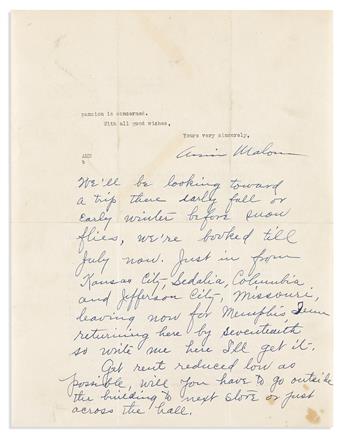 pansion is concerned.
With all good wishes,
Yours very sincerely,
Annie Malone
We'll be looking toward
a trip there early fall or
early winter before snow
flies, we're booked till
July now. Just in from
Kansas City, Sedalia, Columbia
and Jefferson City, Missouri,
leaving now for Memphis, Tenn
returning here by seventeenth
so write me here I'll get it.
Get rent reduced low as
possible, will you have to go outside
the building to next store or just
across the hall.